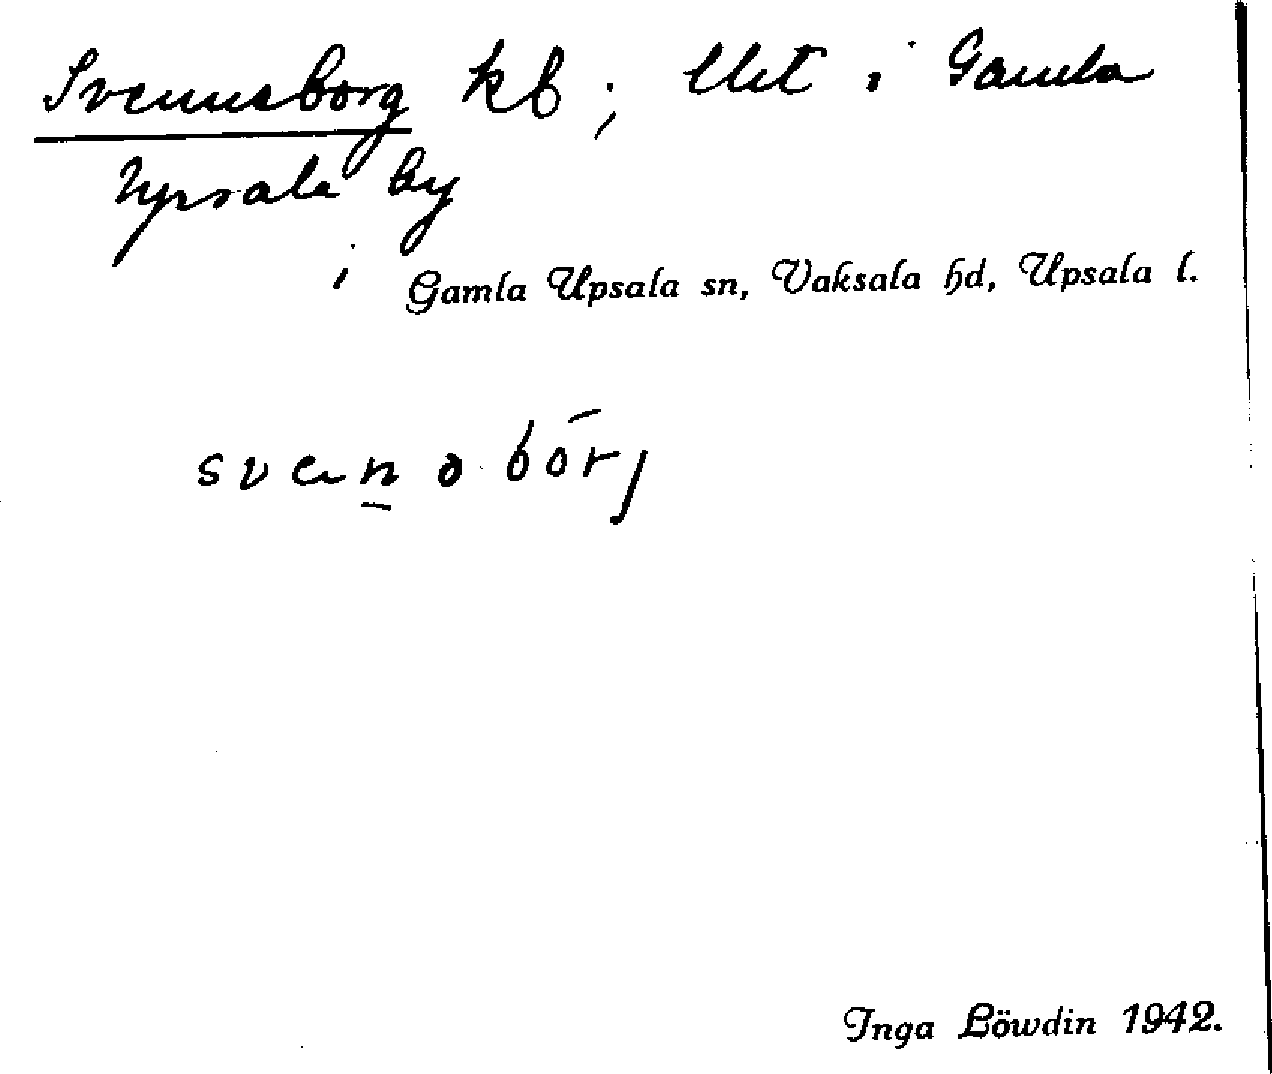 Svennsborg kb; Uet i Gamla
Upsala by
i Gamla Upsala sn, Vaksala hd, Upsala l.
Inga Löwdin 1942.